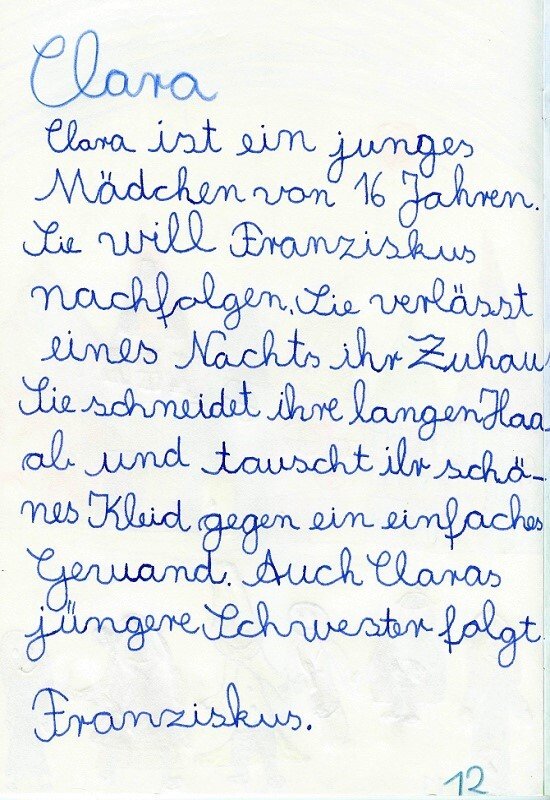 Clara
Clara ist ein junges
Mädchen von 16 Jahren.
Sie will Franziskus
nachfolgen. Sie verlässt
eines Nachts ihr Zuhau
Sie schneidet ihre langen Haa
ab und tauscht ihr schö-
nes Kleid gegen ein einfaches
Gewand. Auch Claras
jüngere Schwester folgt
Franziskus.
12